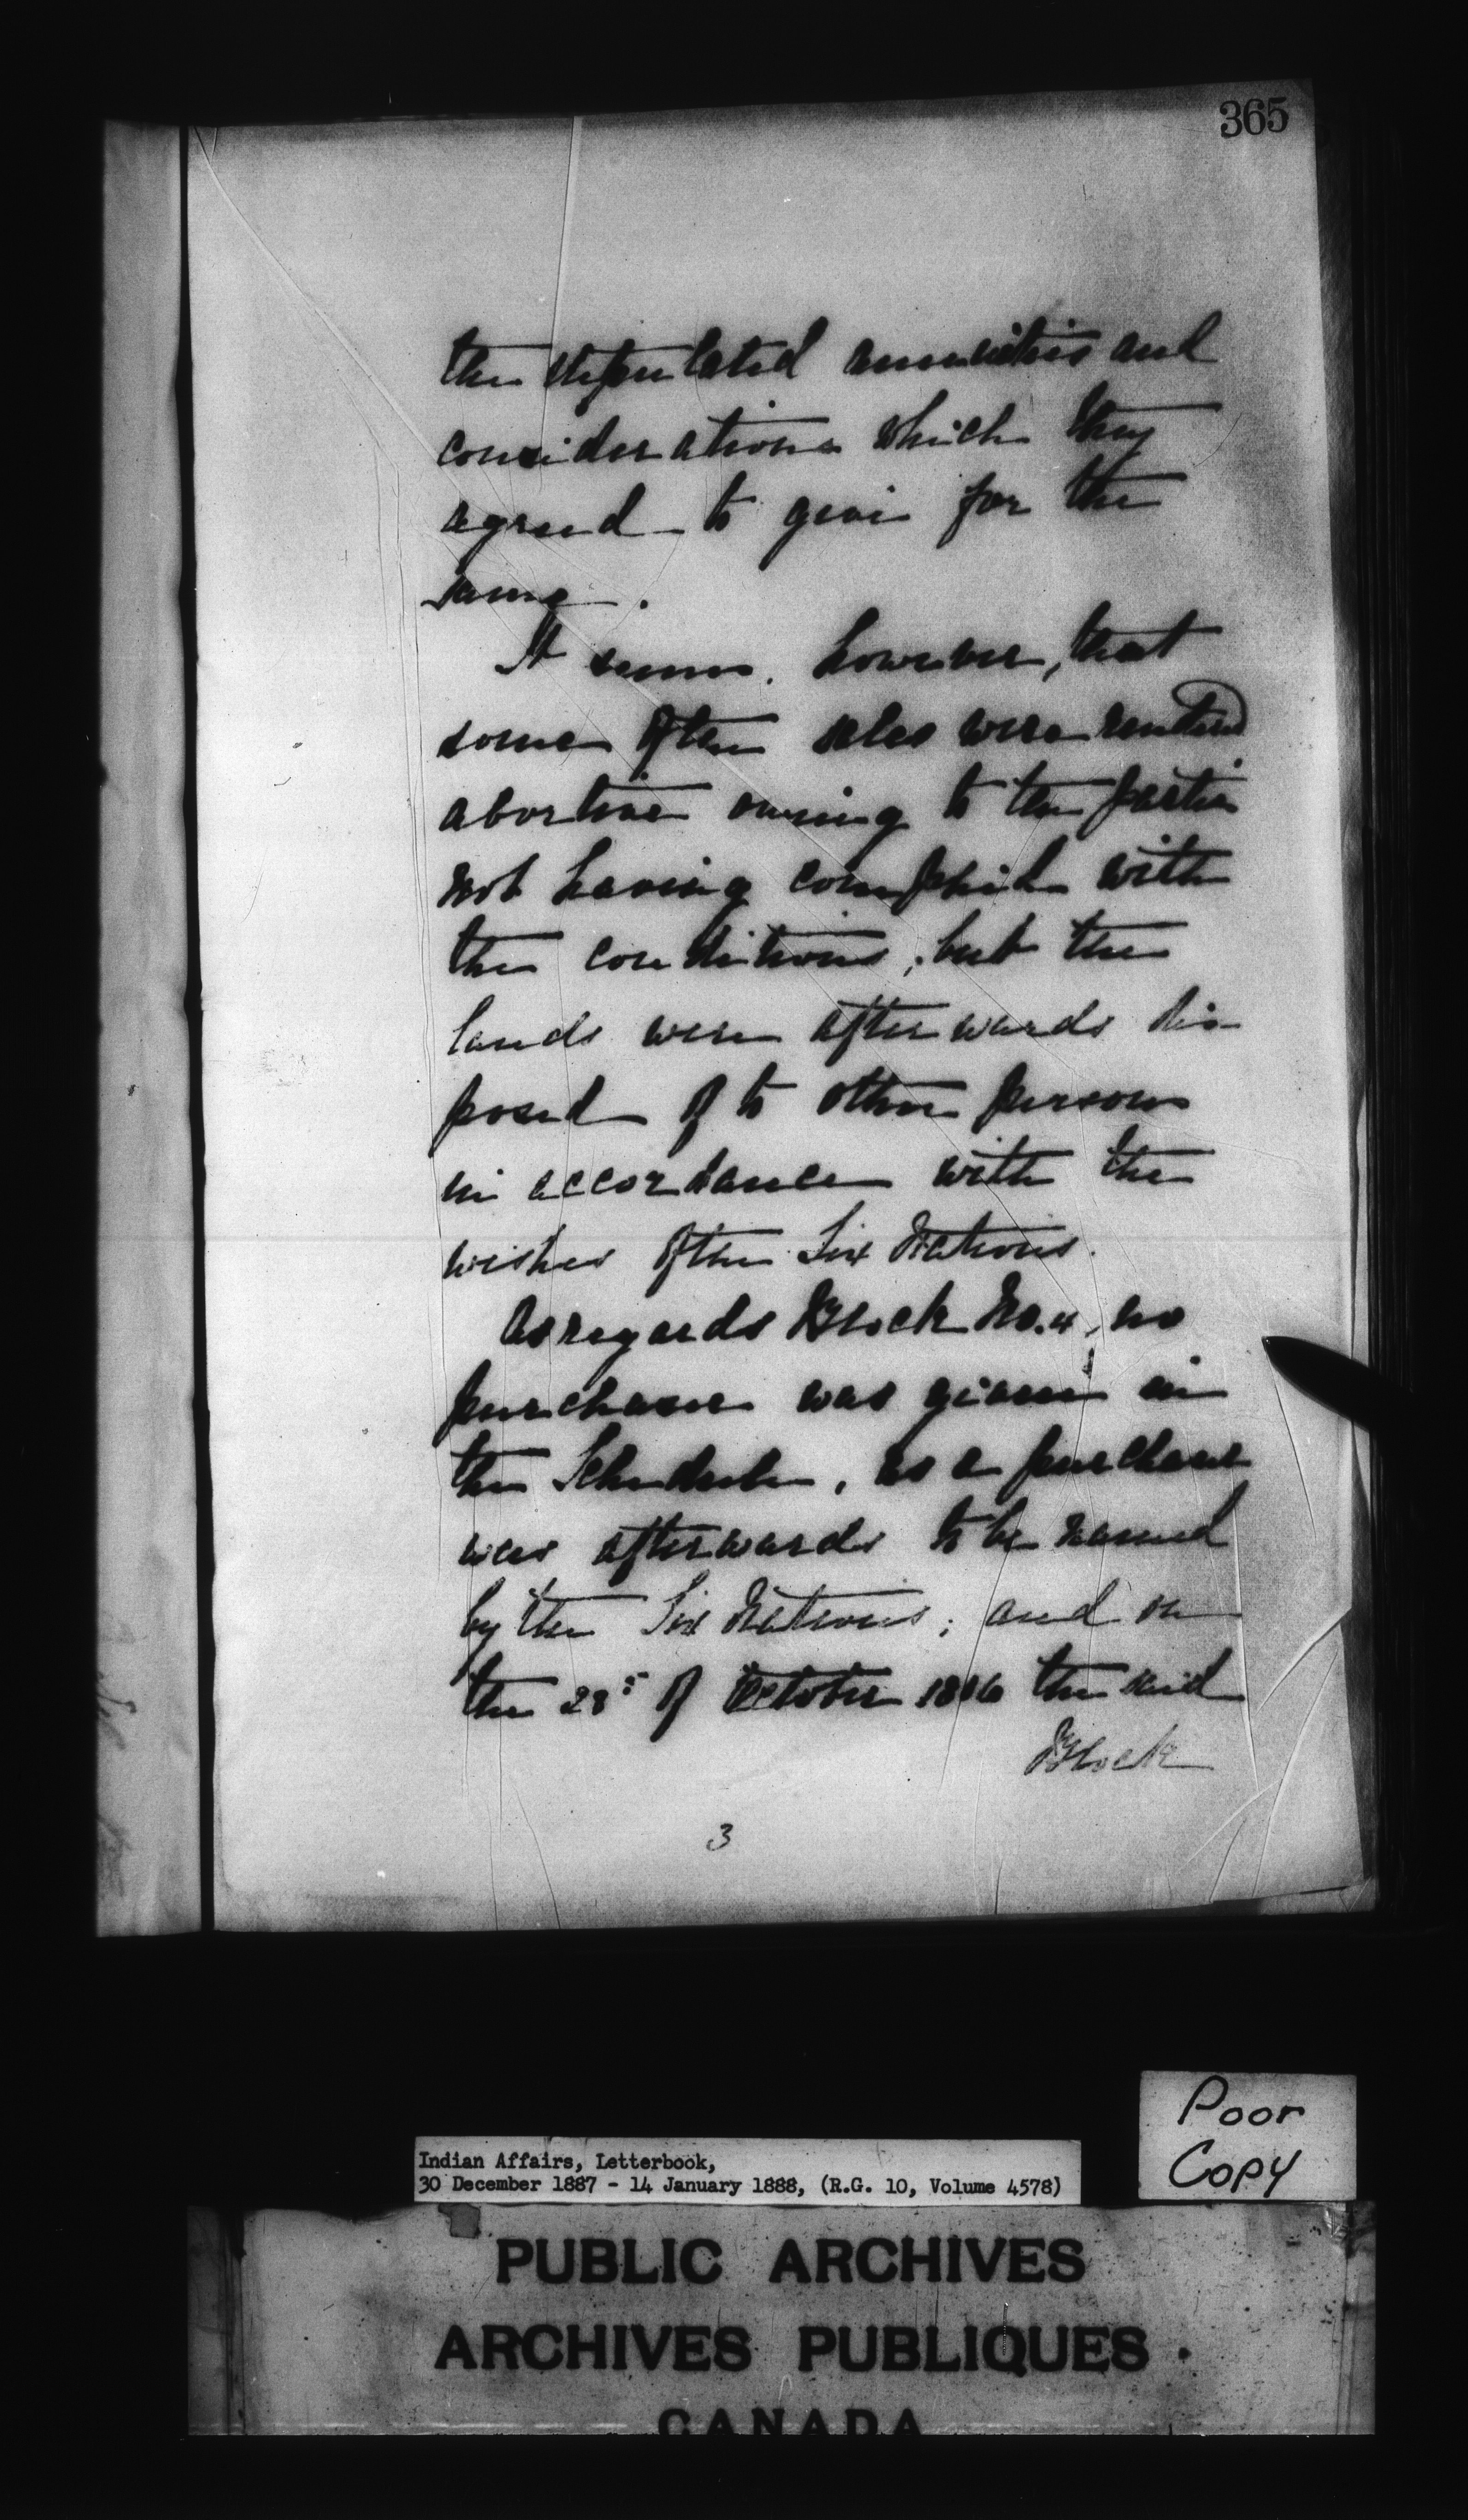 365
the stipulated annuities and
considerations which they
agreed to give for the
same.
It seems, however, that
some of the sales were rendered
abortive owing to the parties
not having complied with
the conditions; but the
lands were afterwards dis-
posed of to other persons
in accordance with the
wishes of the Six Nations.
As regards Block No. 4, no
purchaser was given in
the Schedule, as a purchaser
was afterwards to be named
by the Six Nations; and on
the 28th of October 1806 the said
Block
3
Poor
Copy
Indian Affairs, Letterbook,
30 December 1887 - 14 January 1888, (R.G. 10, Volume 4578)
PUBLIC ARCHIVES
ARCHIVES PUBLIQUES
CANADA